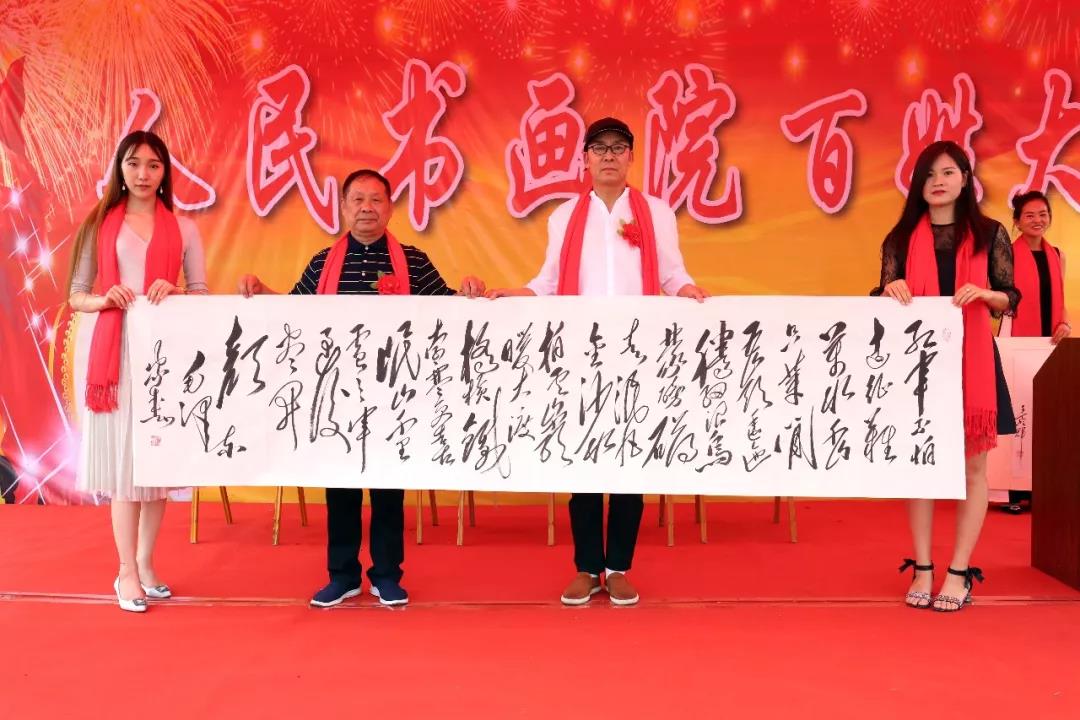 人民书画院百姓大
红军不怕
远征难
万水千山
只等闲
五岭逶迤
腾细浪乌
蒙磅礴
走泥丸
金沙水
拍云崖
暖大渡
桥横铁
索寒更喜
岷山千里
雪三军
过后
尽开
颜
毛泽东